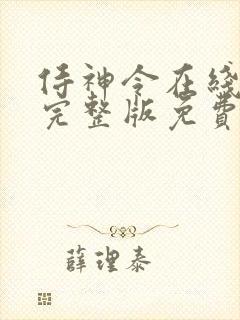 侍神令在线
完整版免费
薛理泰